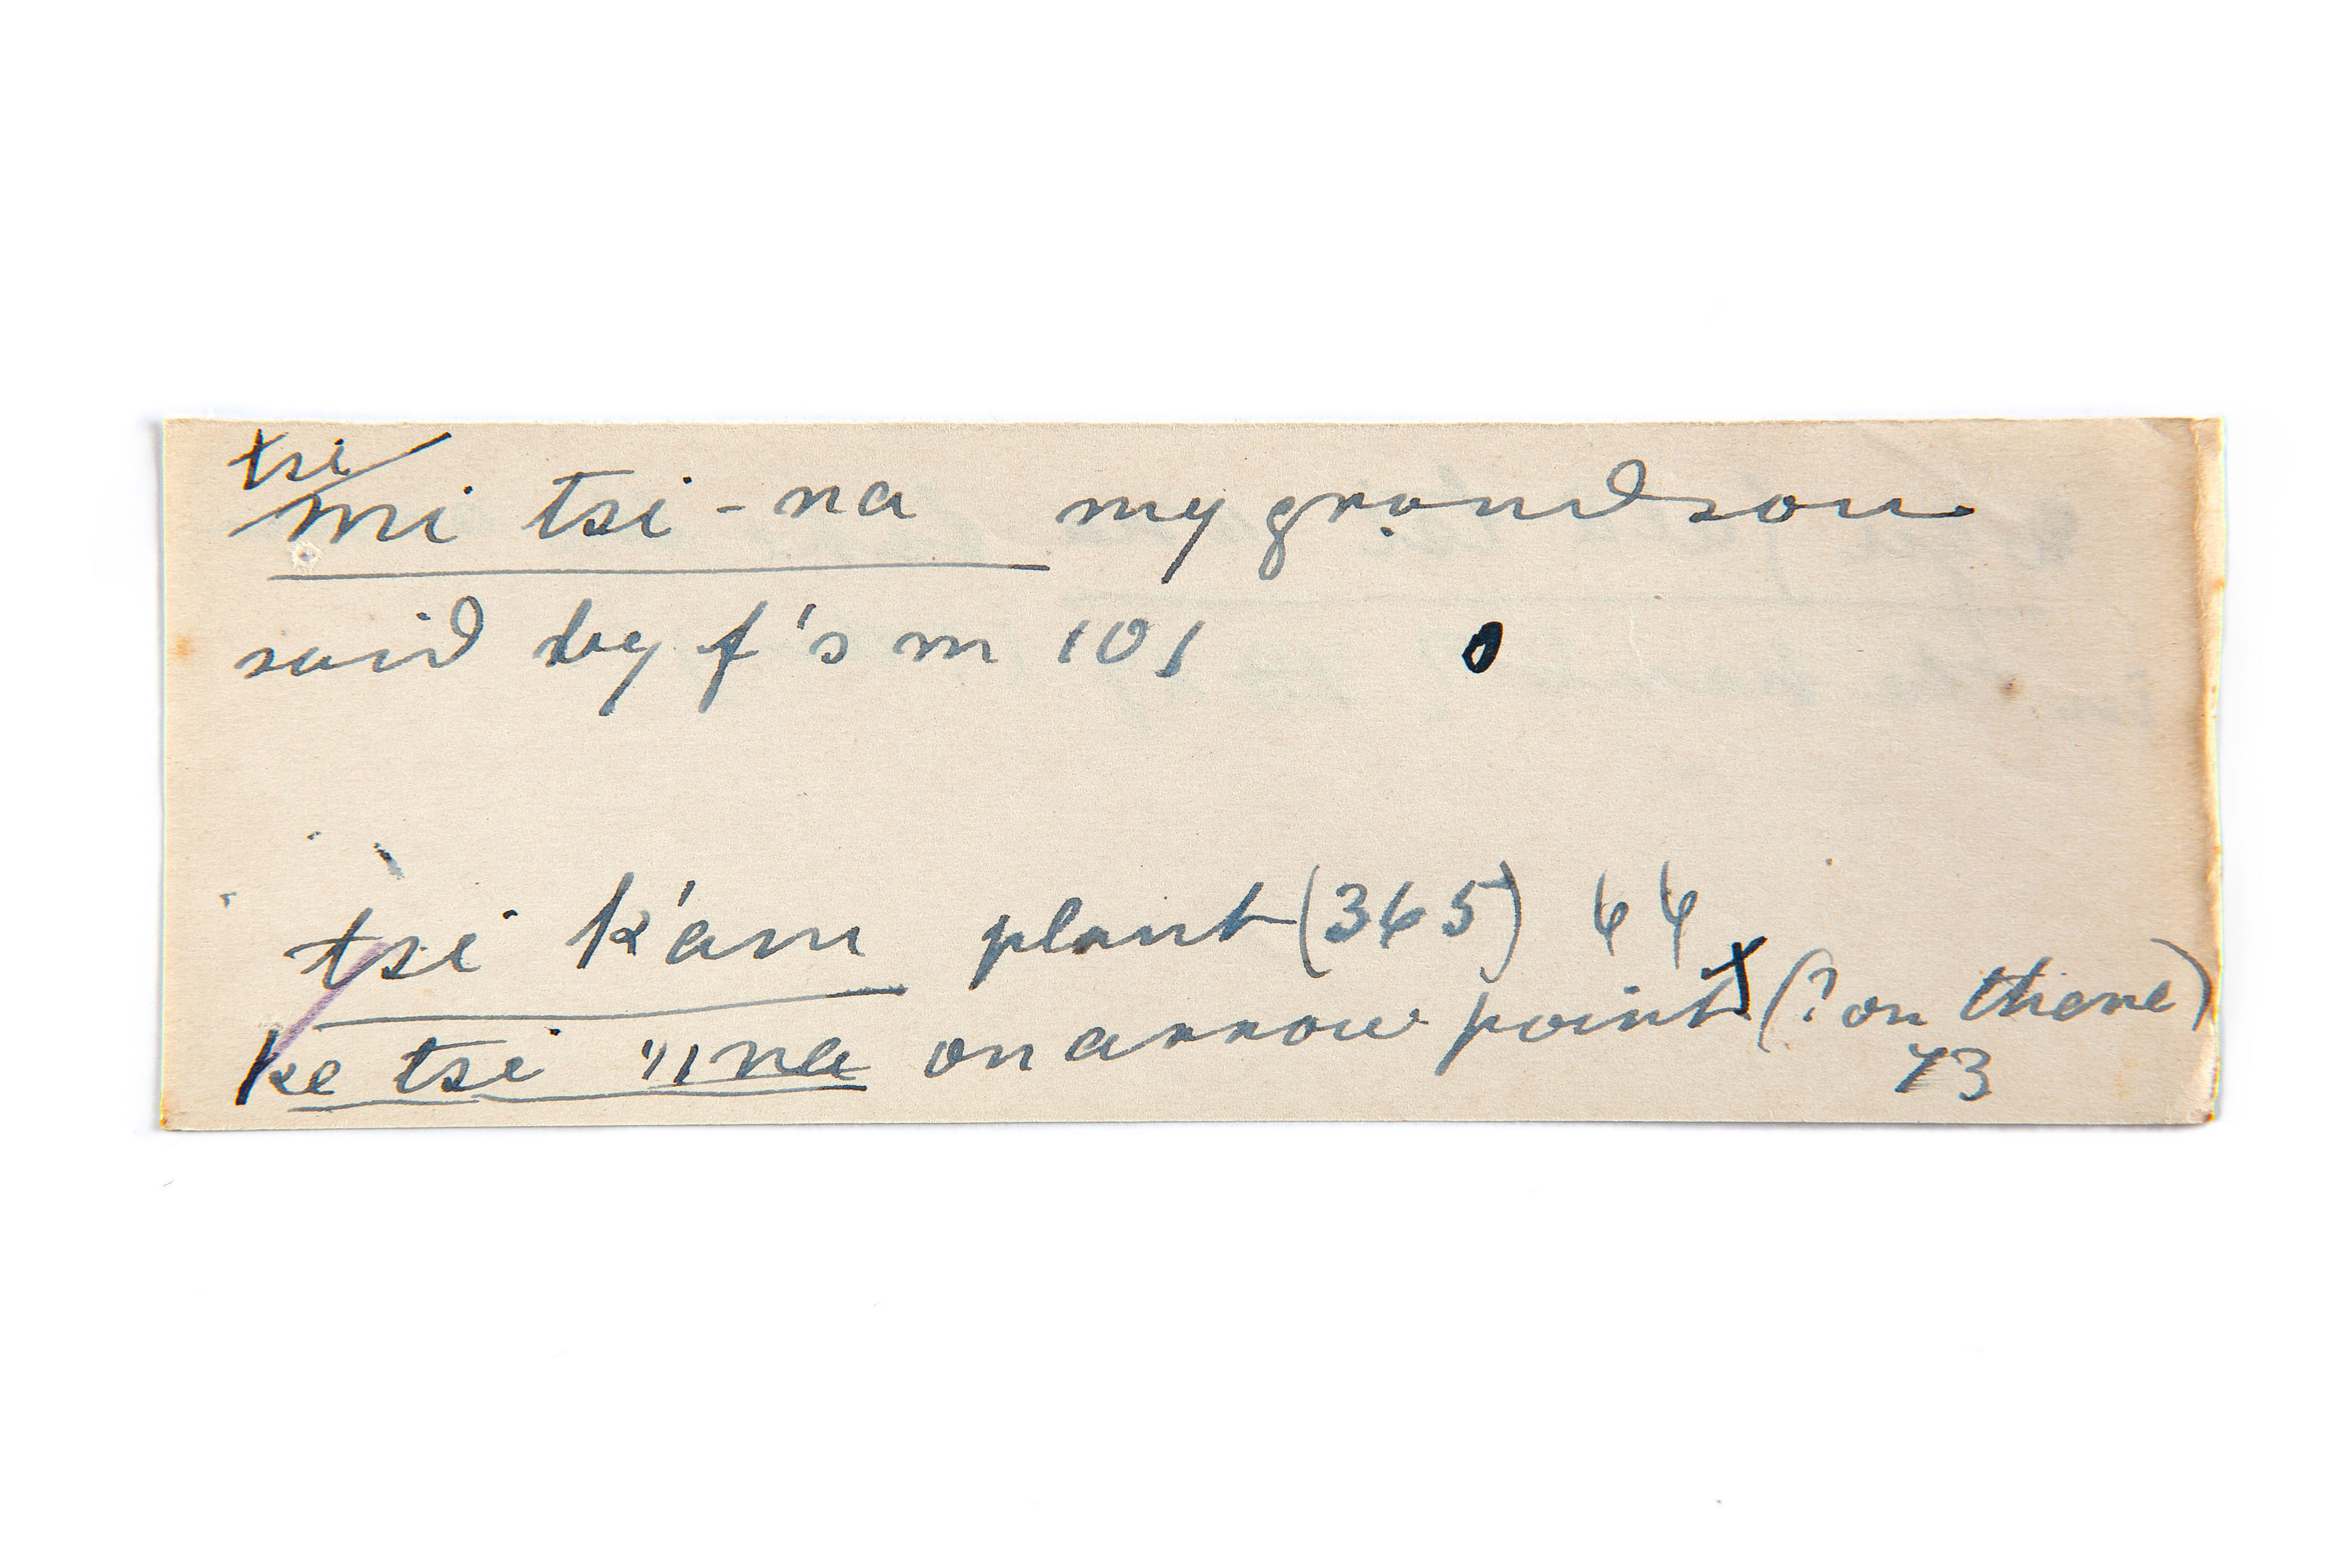 tsi
mi tsi-na my grandson
said by f's m 101
tsi k'am plant (365) 44
ke tsi "na on arrow point (? on there)
73